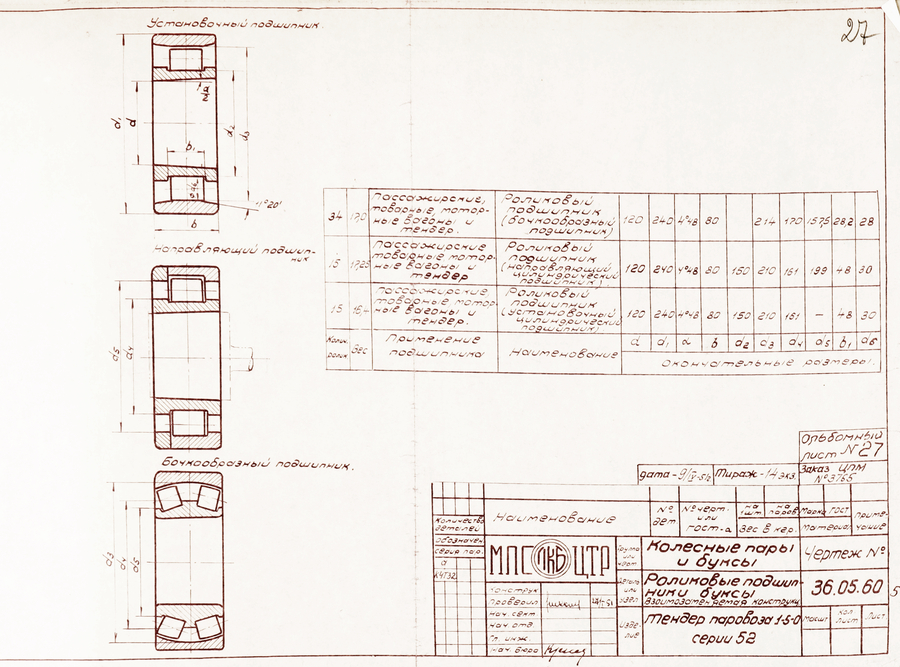 Установочный подшипник.
27
d₁
d
d₂
d₃
b₁
1°20'
b
Направляющий подшип-
ник
d₅
d₄
Бочкообразный подшипник.
d₃
d₄
d₅
34
17,0
Пассажирские,
товарные, мотор-
ные вагоны и
тендер.
Роликовый
подшипник
(бочкообразный
подшипник)
120 240 4°48 80 214 170 157,5 28,2 28
15
17,25
Пассажирские
товарные мотор-
ные вагоны и
тендер
Роликовый
подшипник
(направляющий
цилиндрический
подшипник)
120 240 4°48 80 150 210 161 199 48 30
15
16,4
Пассажирские
товарные, мотор-
ные вагоны и
тендер.
Роликовый
подшипник
(установочный
цилиндрический
подшипник)
120 240 4°48 80 150 210 161 – 48 30
Колич.
ролик
Вес
Применение
подшипника
Наименование
d d₁ α b d₂ d₃ d₄ d₅ b₁ d₆
Окончательные размеры.
Альбомный
лист N 27
Дата - 9/IV-51г
Тираж - 14 экз.
Заказ ЦПМ
№3765
Количество
деталей
обозначен.
серия пар.
Наименование
№
дет
№ черт-
или
ГОСТ-а
на
1шт.
на
паров
Вес в кгр.
Марка
ГОСТ
Материал
Приме-
чание
МПС ПКБ ЦТР
Группа
или
Колесные пары
и буксы
Чертеж №
Деталь
или
узел
Роликовые подшип-
ники буксы
взаимозаменяемая конструкц
36.05.60
5
Конструк
проверил
нач. сект
нач. отд.
гл. инж.
нач. бюро
Изде-
лие
Тендер паровоза 1-5-0
серии 52
масшт
кол
лист
Лист